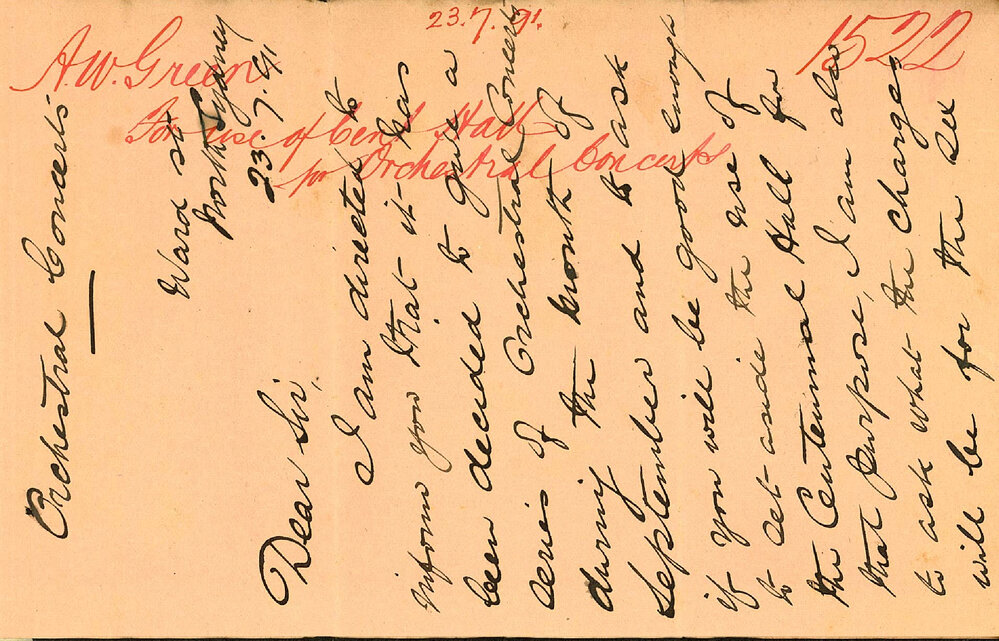 23.7.91.
1522
A.W. Green
For use of Cent Hall
for Orchestral Concerts
Orchestral Concerts
Ward st
North Sydney
23.7.91
Dear Sir,
I am directed to
inform you that it has
been decided to give a
series of Orchestral Concerts
during the month of
September and to ask
if you will be good enough
to set aside the use of
the Centennial Hall for
that purpose, I am also
to ask what the charges
will be for the six